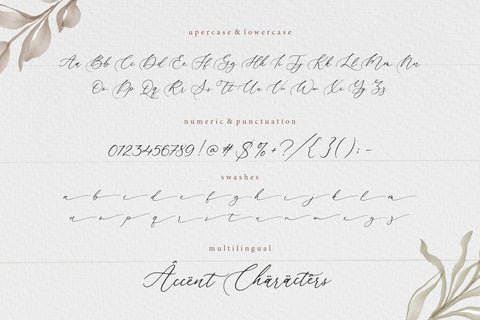 upercase & lowercase
Aa Bb Cc Dd Ee Ff Gg Hh Ii Jj Kk Ll Mm Nn
Oo Pp Qq Rr Ss Tt Uu Vv Ww Xx Yy Zz
numeric & punctuation
0123456789!@#$%+?/{}():-
swashes
a b c d e f g h i j k l m
n o p q r s t u v w x y z
multilingual
Âccënt Chäräctêrs